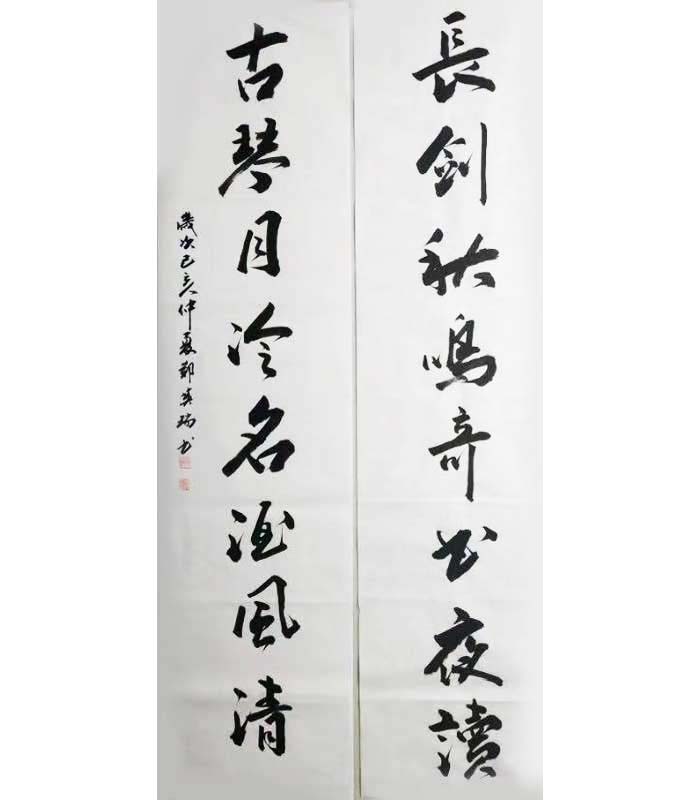 長劍秋鳴奇书夜讀
古琴月冷名酒風清
歲次己亥仲夏鄭英瑞书